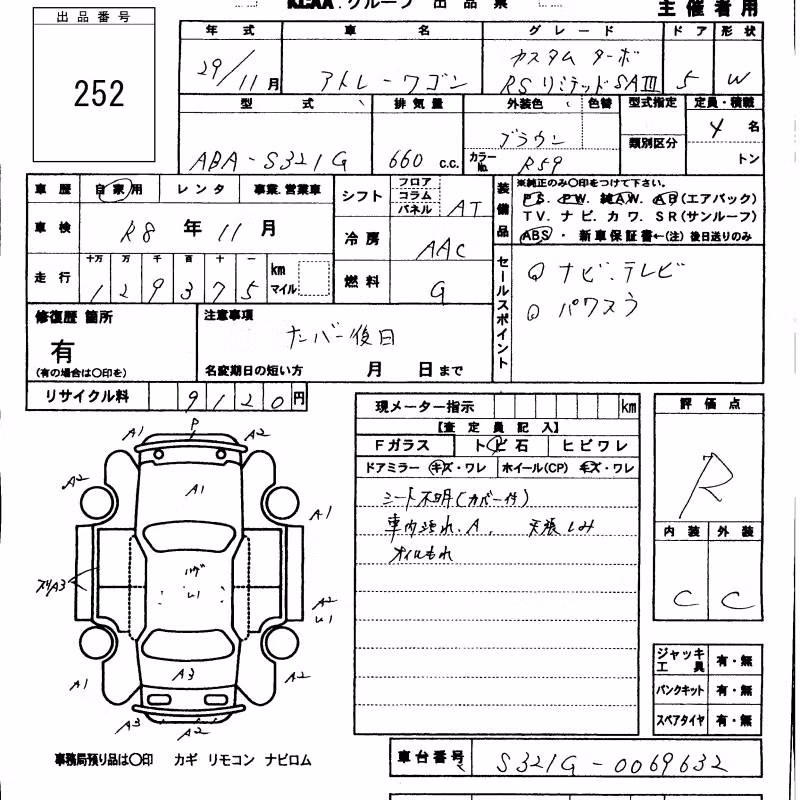 KCAA.グループ 出品票
主催者用
出品番号
252
年式 車名 グレード ドア 形状
29/11月 アトレーワゴン カスタム ターボ RSリミテッドSAⅢ 5 W
型式 排気量 外装色 色替 型式指定 定員・積載
ABA-S321G 660 c.c. ブラウン 類別区分 4名
カラーNo. R59 トン
車歴 自家用 レンタ 事業.営業車
車検 R8年11月
走行 十万 万 千 百 十 一 km マイル
1 2 9 3 7 5
シフト フロア コラム パネル AT
冷房 AAC
燃料 G
装備品 ※純正のみ〇印をつけて下さい。
PS. PW. 純AW. AB(エアバック)
TV. ナビ. カワ. SR(サンルーフ)
ABS・ 新車保証書←(注) 後日送りのみ
セールスポイント
ナビ.テレビ
パワスラ
修復歴 箇所
有
(有の場合は〇印を)
注意事項
ナンバー後日
名変期日の短い方 月 日まで
リサイクル料 9120円
現メーター指示 km
【査定員記入】
Fガラス トビ石 ヒビワレ
ドアミラー キズ・ワレ ホイール(CP) キズ・ワレ
シート不明(カバー付)
車内汚れ.A. 天張しみ
オイルもれ
評価点
R
内装 外装
C C
ジャッキ工具 有・無
パンクキット 有・無
スペアタイヤ 有・無
A1 P A2
A2 A1 A1
A3 A2
A1 A3 A2
A3 A2
事務局預り品は〇印 カギ リモコン ナビロム
車台番号 S321G-0069632